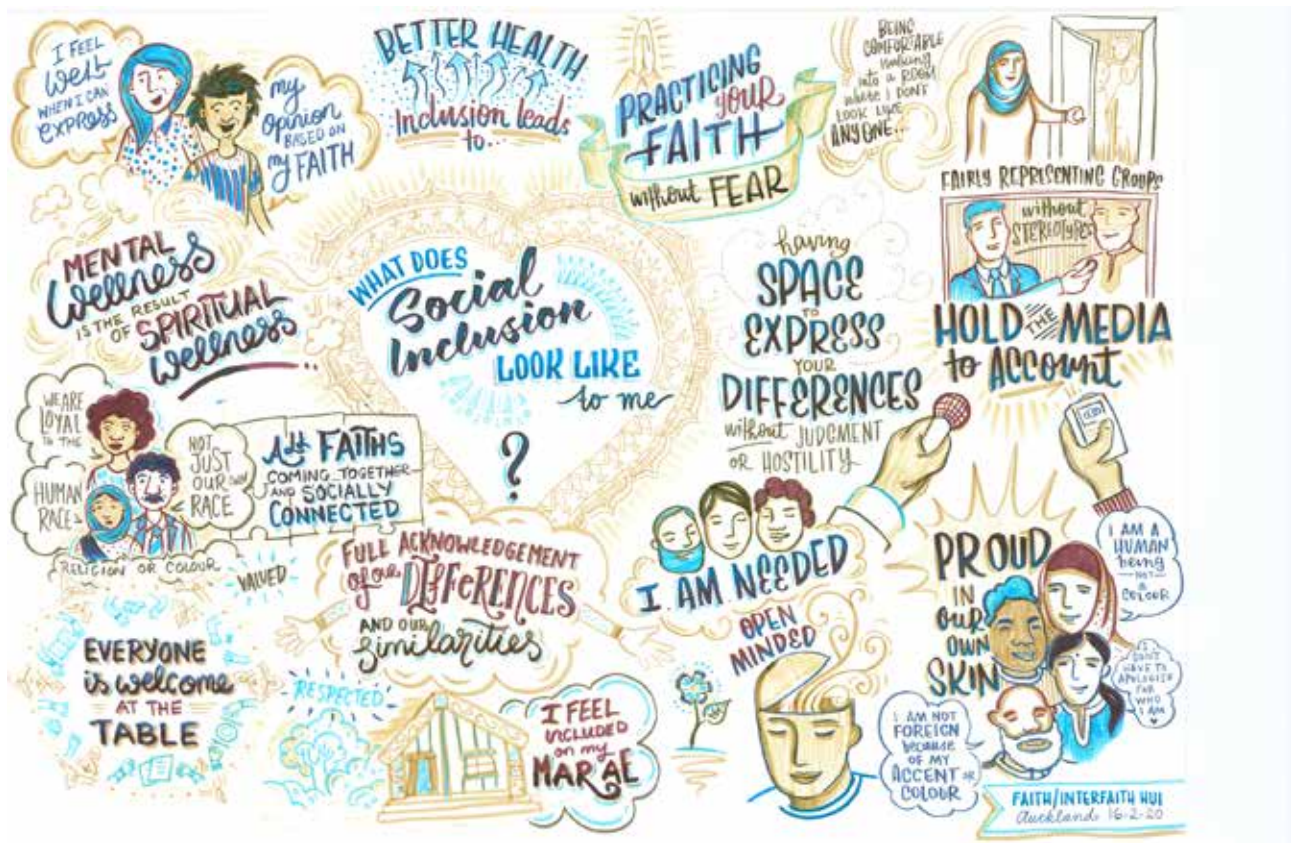 I FEEL
Well
WHEN I CAN
EXPRESS
my
Opinion
BASED ON
my FAITH
BETTER HEALTH
Inclusion leads
to..
PRACTICING
YOUR
FAITH
without FEAR
BEING
COMFORTABLE
walking
into a ROOM
where I DON'T
LOOK LIKE
ANYONE...
FAIRLY REPRESENTING GROUPS
without
STEREOTYPES
HOLD THE MEDIA
to ACCOUNT
MENTAL
Wellness
IS THE RESULT
OF SPIRITUAL
Wellness
WHAT DOES
Social
Inclusion
LOOK LIKE
to me
?
having
SPACE
TO
EXPRESS
YOUR
DIFFERENCES
without JUDGMENT
OR HOSTILITY
WE ARE
LOYAL
TO THE
HUMAN
RACE
NOT
JUST
OUR OWN
RACE
RELIGION OR COLOUR
All FAITHS
COMING TOGETHER
AND SOCIALLY
CONNECTED
VALUED
FULL ACKNOWLEDGEMENT
of our DIFFERENCES
AND OUR
Similarities
I AM NEEDED
OPEN
MINDED
PROUD
IN
OUR
OWN
SKIN
I AM A
HUMAN
being
NOT
a
COLOUR
I DON'T
HAVE TO
APOLOGISE
FOR
WHO
I AM
I AM NOT
FOREIGN
because
OF MY
ACCENT OR
COLOUR
EVERYONE
is welcome
AT THE
TABLE
RESPECTED
I FEEL
INCLUDED
on my
MARAE
FAITH/INTERFAITH HUI
Auckland 16-2-20